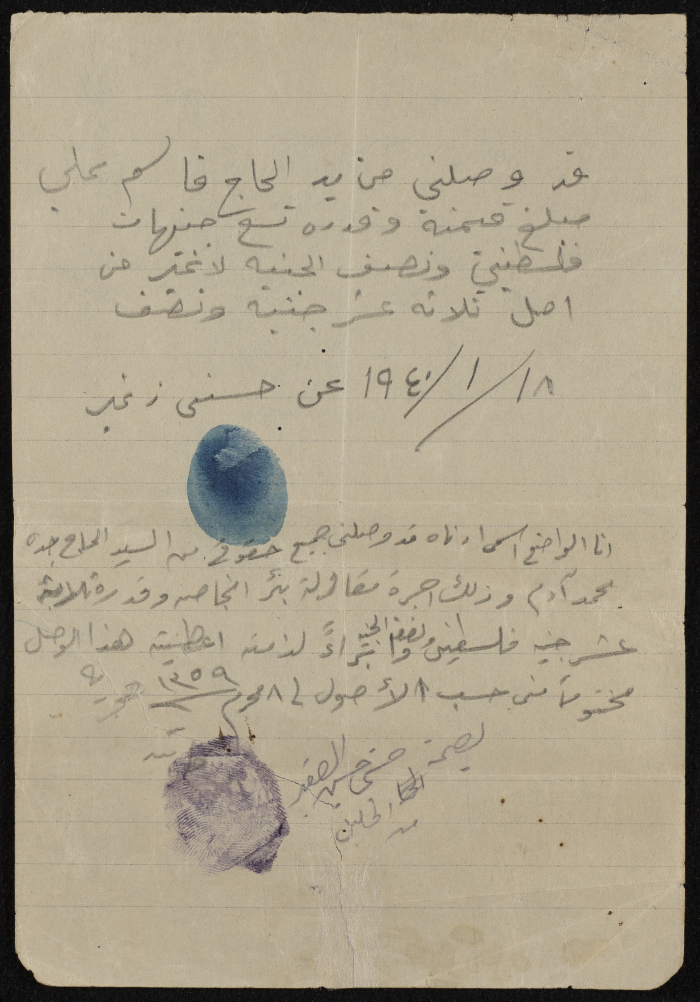 قد وصلني من يد الحاج قاسم علي
مبلغ قيمنة وقدره تسع جنيهات
فلسطيني ونصف الجنيه لا غير من
اصل ثلاثه عشر جنيه ونصف
١٨/١/١٩٤٠ عن حسني زغير
انا الواضع اسمي ادناه قد وصلني جميع حقوقي من السيد الحاج
محمد آدم وذلك اجرة مقاولة بئر وقدره ثلاثة
عشر جنيه فلسطيني ونصف الجنيه لذمته اعطيته هذا الوصل
مختوماً مني حسب الأصول في ٨ محرم ١٣٥٩ هجرية
بصمة حسني حسن
من الخليل